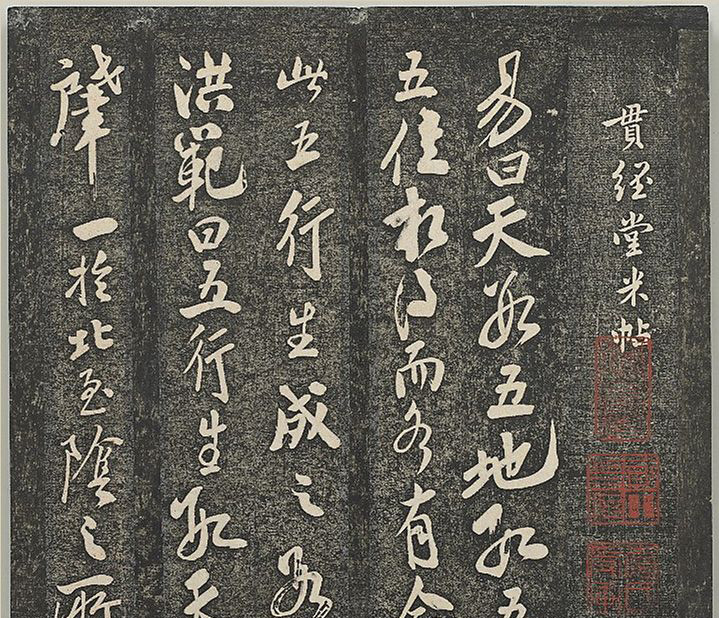 貫經堂米帖
易曰天數五地數五
五位相得而各有合
此五行生成之數
洪範曰五行生數天
肇一於北至陰之所